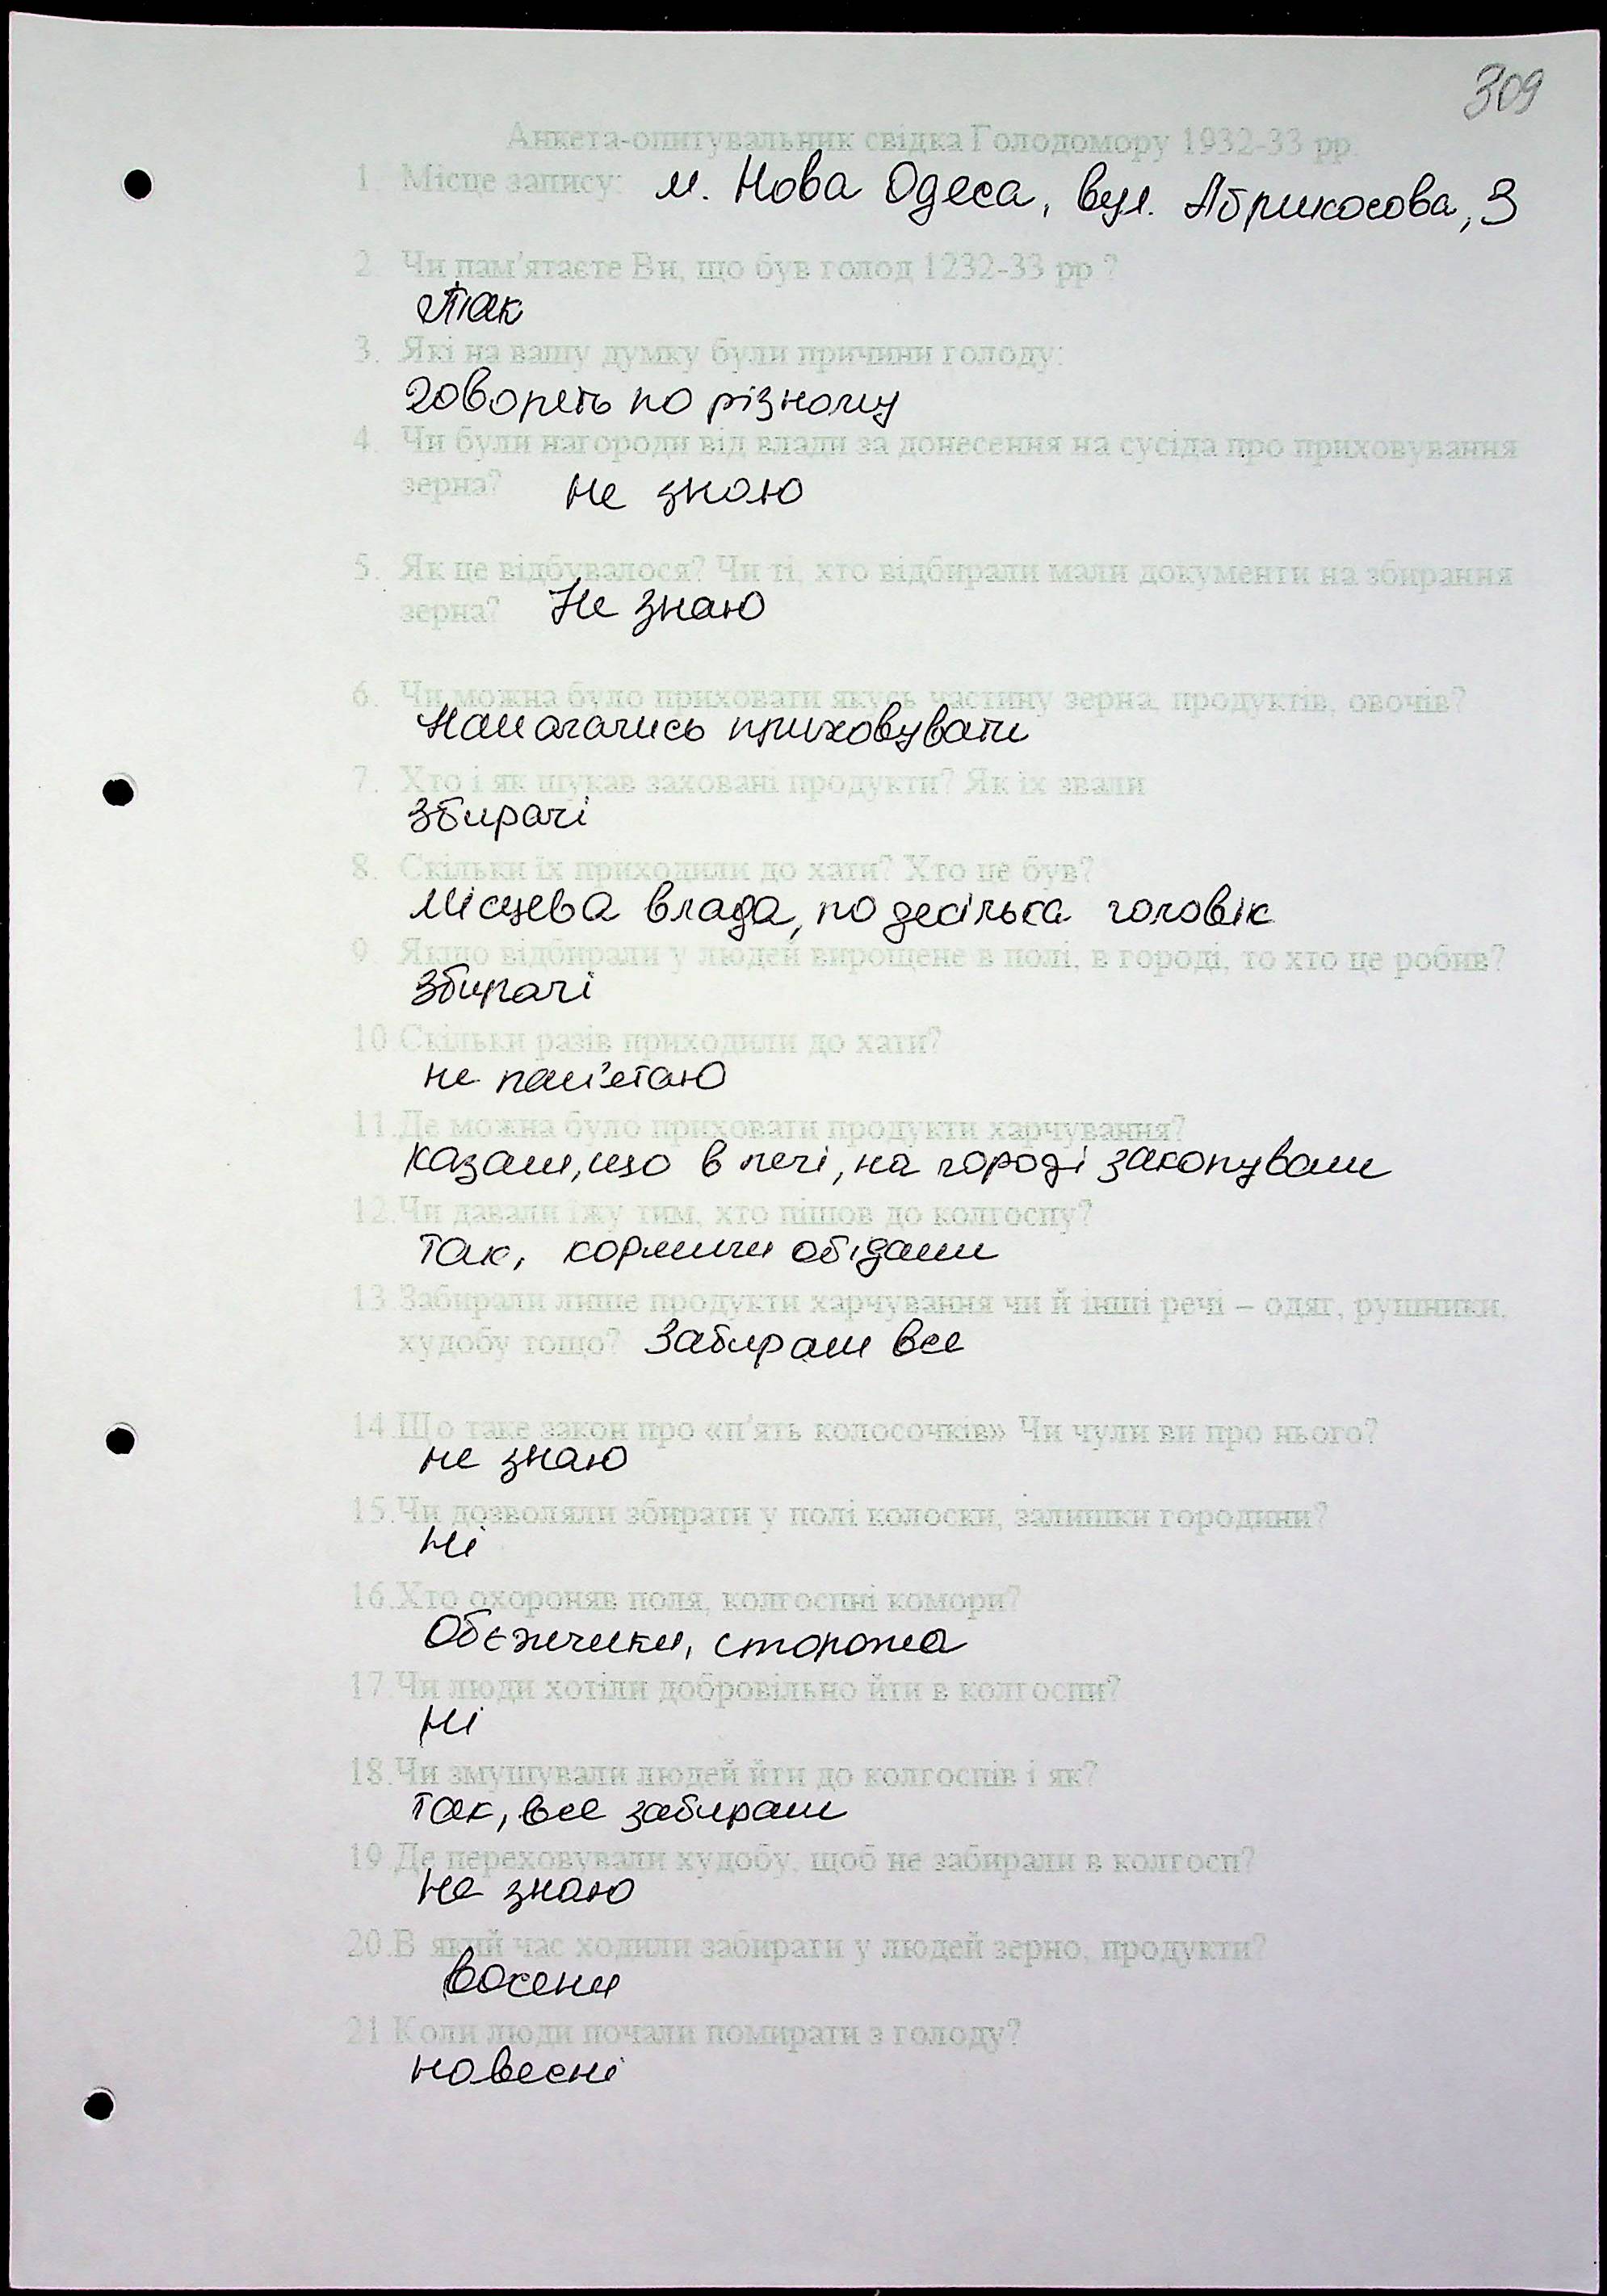 309
Анкета-опитувальник свідка Голодомору 1932-33 рр.
1. Місце запису: м. Нова Одеса, вул. Абрикосова, 3
2. Чи пам'ятаєте Ви, що був голод 1232-33 рр ?
Так
3. Які на вашу думку були причини голоду:
Говорять по різному
4. Чи були нагороди від влади за донесення на сусіда про приховування
зерна? не знаю
5. Як це відбувалося? Чи ті, хто відбирали мали документи на збирання
зерна? Не знаю
6. Чи можна було приховати якусь частину зерна, продуктів, овочів?
Намагались приховувати
7. Хто і як шукав заховані продукти? Як їх звали
збирачі
8. Скільки їх приходили до хати? Хто це був?
Місцева влада, по декілька чоловік
9. Якщо відбирали у людей вирощене в полі, в городі, то хто це робив?
Збирачі
10.Скільки разів приходили до хати?
не пам'ятаю
11.Де можна було приховати продукти харчування?
казали, що в печі, на городі закопували
12.Чи давали їжу тим, хто пішов до колгоспу?
так, кормили обідами
13.Забирали лише продукти харчування чи й інші речі – одяг, рушники,
худобу тощо? Забирали все
14.Що таке закон про «п'ять колосочків» Чи чули ви про нього?
не знаю
15.Чи дозволяли збирати у полі колоски, залишки городини?
Ні
16.Хто охороняв поля, колгоспні комори?
Обєжчики, сторожа
17.Чи люди хотіли добровільно йти в колгоспи?
Ні
18.Чи змушували людей йти до колгоспів і як?
Так, все забирали
19.Де переховували худобу, щоб не забирали в колгосп?
Не знаю
20.В який час ходили забирати у людей зерно, продукти?
восени
21.Коли люди почали помирати з голоду?
навесні